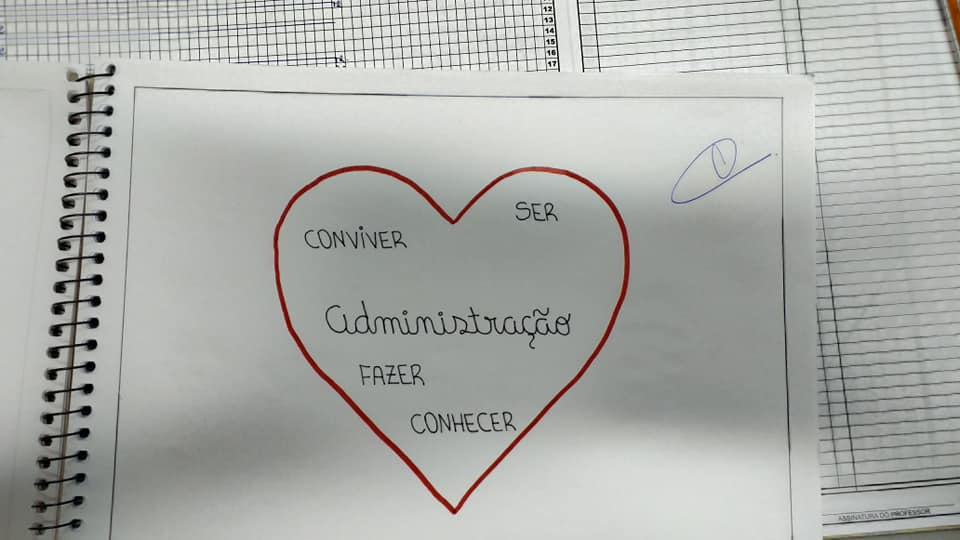 12
13
14
15
16
17
SER
CONVIVER
administração
FAZER
CONHECER
ASSINATURA DO PROFESSOR